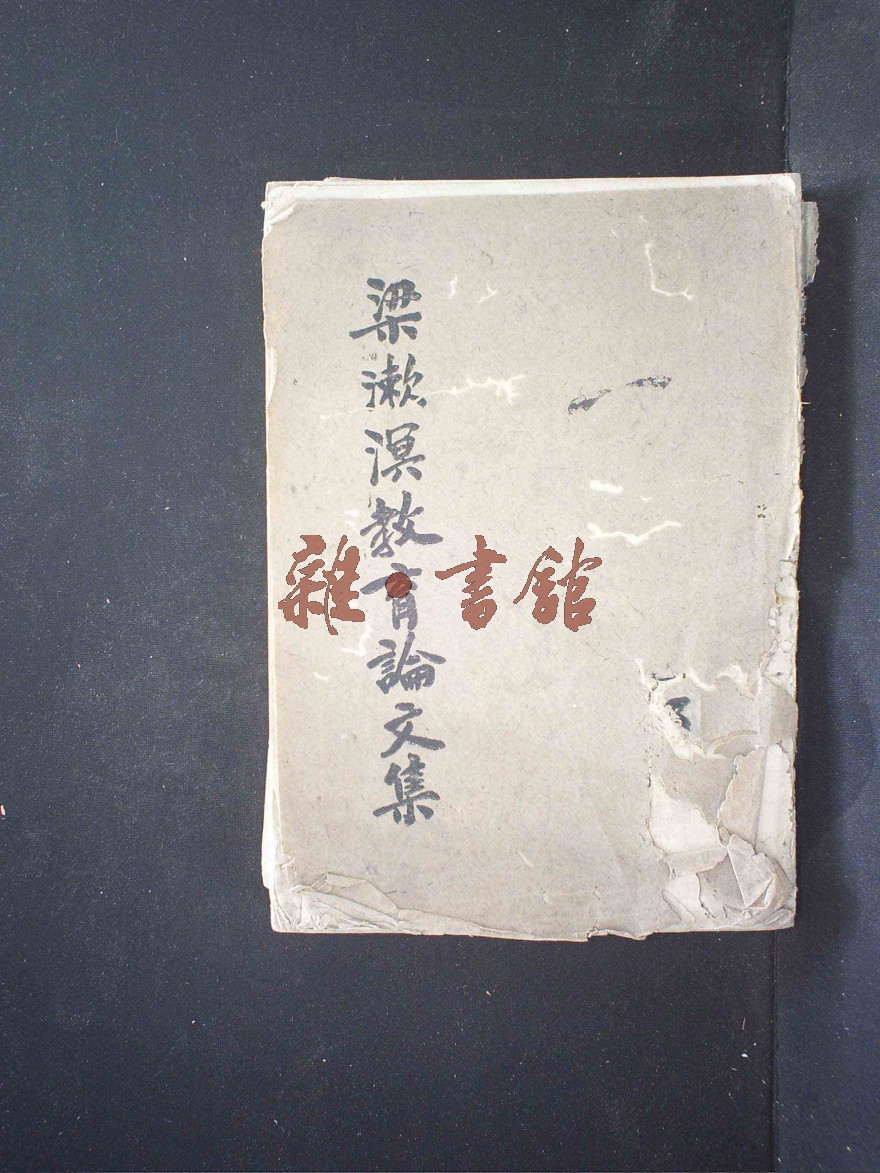 梁漱溟教育論文集
雜·書館